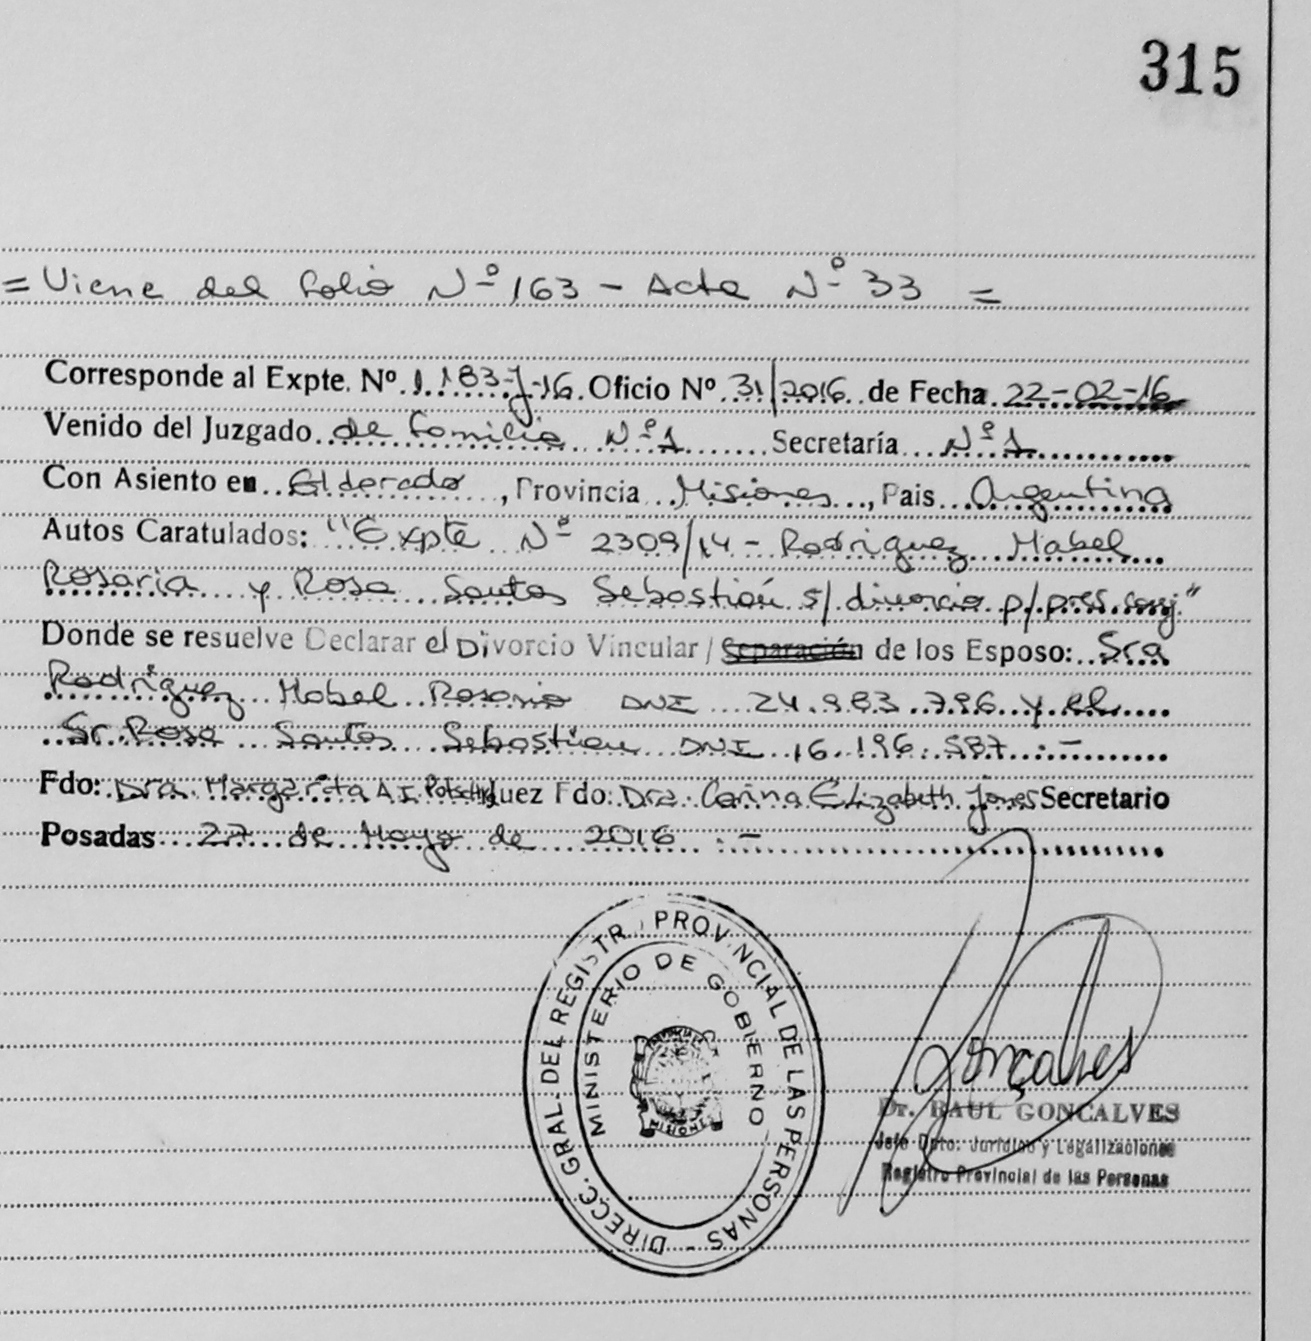 315
= Viene del folio Nº 163 - Acta Nº 33 =
Corresponde al Expte. Nº 1.183-J-16. Oficio Nº 31/2016 de Fecha 22-02-16
Venido del Juzgado de Familia Nº 1 Secretaría Nº 1
Con Asiento en Eldorado, Provincia Misiones, Pais Argentina
Autos Caratulados: "Expte Nº 2309/14 - Rodriguez Mabel
Rosaria y Rosa Santos Sebastián s/ divorcio p/pres. conj."
Donde se resuelve Declarar el Divorcio Vincular / Separación de los Esposo: Sra
Rodríguez Mabel Rosario DNI 24.983.796 y el
Sr Rosa Santos Sebastian DNI 16.196.587 .-
Fdo: Dra. Margarita A I Juez Fdo: Dra. Carina Elizabeth Jones Secretario
Posadas 27 de Mayo de 2016 .-
DIRECC. GRAL. DEL REGISTR. PROVINCIAL DE LAS PERSONAS -
MINISTERIO DE GOBIERNO
Gonçalves
Dr. RAUL GONCALVES
Jefe Dpto. Jurídico y Legalizaciones
Registro Provincial de las Personas